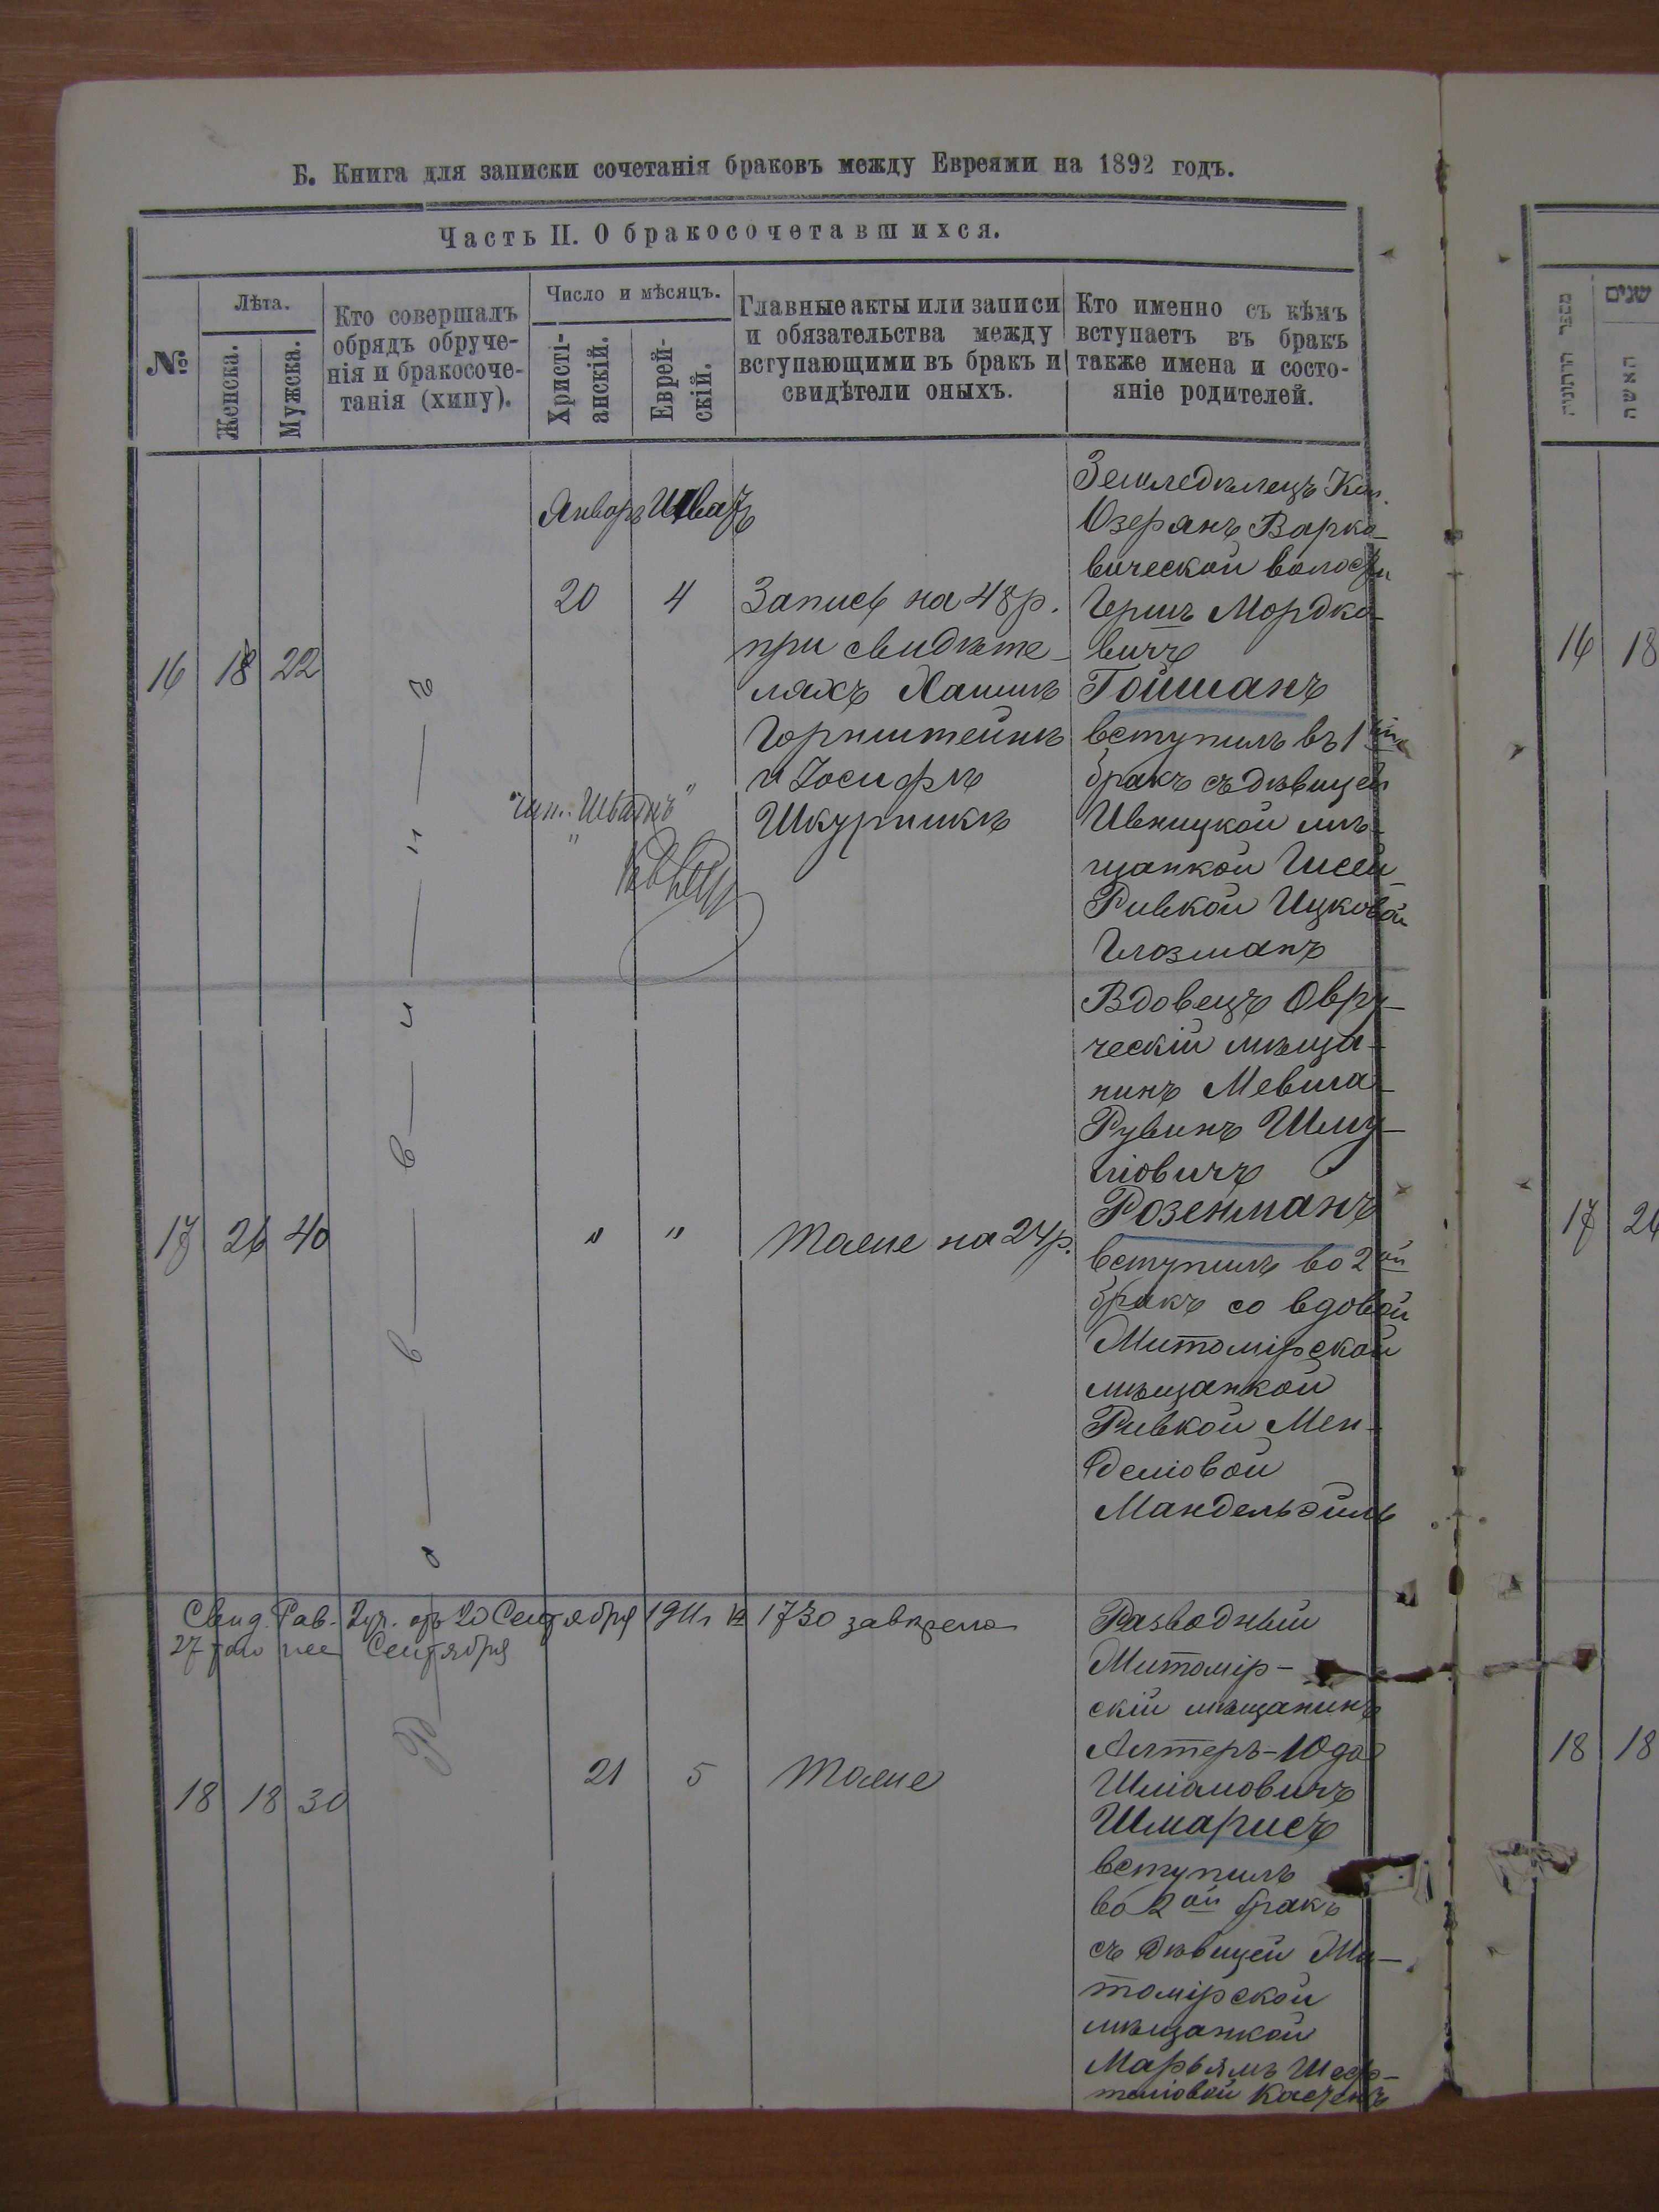 Б. Книга для записки сочетанія браковъ между Евреями на 1892 годъ.
Часть II. О бракосочетавшихся.
№
Лѣта.
Женска.
Мужска.
Кто совершалъ
обрядъ обруче-
нія и бракосоче-
танія (хипу).
Число и мѣсяцъ.
Христі-
анскій.
Еврей-
скій.
Главные акты или записи
и обязательства между
вступающими въ бракъ и
свидѣтели оныхъ.
Кто именно съ кѣмъ
вступаетъ въ бракъ
также имена и состо-
яніе родителей.
Январь
16 18 22
20 4
Запись на 48 р.
при свидѣте-
ляхъ Хаимѣ
Горнштейнѣ
и Іосифѣ
Шкурникѣ
Земледѣлецъ Кол.
Озерянъ Варко-
вической волости
Гершъ Мордко-
вичъ
Гойшанъ
вступилъ въ 1
бракъ съ дѣвицей
Ивницкой мѣ-
щанкой
Ривкой Ицковой
Глозманъ
17 26 40
" "
Тоже на 24 р.
Вдовецъ Овру-
ческій мѣща-
нинъ Мевша
Рувинъ Шму-
ліовичъ
Розенманъ
вступилъ во 2ой
бракъ со вдовой
Житомірской
мѣщанкой
Ривкой Мен-
деліовой
Мандельэйль
Свид. Рав. отъ 20 Сентября 1911 г № 1730 завѣрено
27 того же Сентября
18 18 30
21 5
Тоже
Разводный
Житомір-
скій мѣщанинъ
Алтеръ-Юдо
Шліомовичъ
Шмарисъ
вступилъ
во 2ой бракъ
съ дѣвицей Жи-
томірской
мѣщанкой
Марьямъ Шеф-
теліовой
Раввинъ
שנים
מספר החתונות
האשה
16 18
17 26
18 18